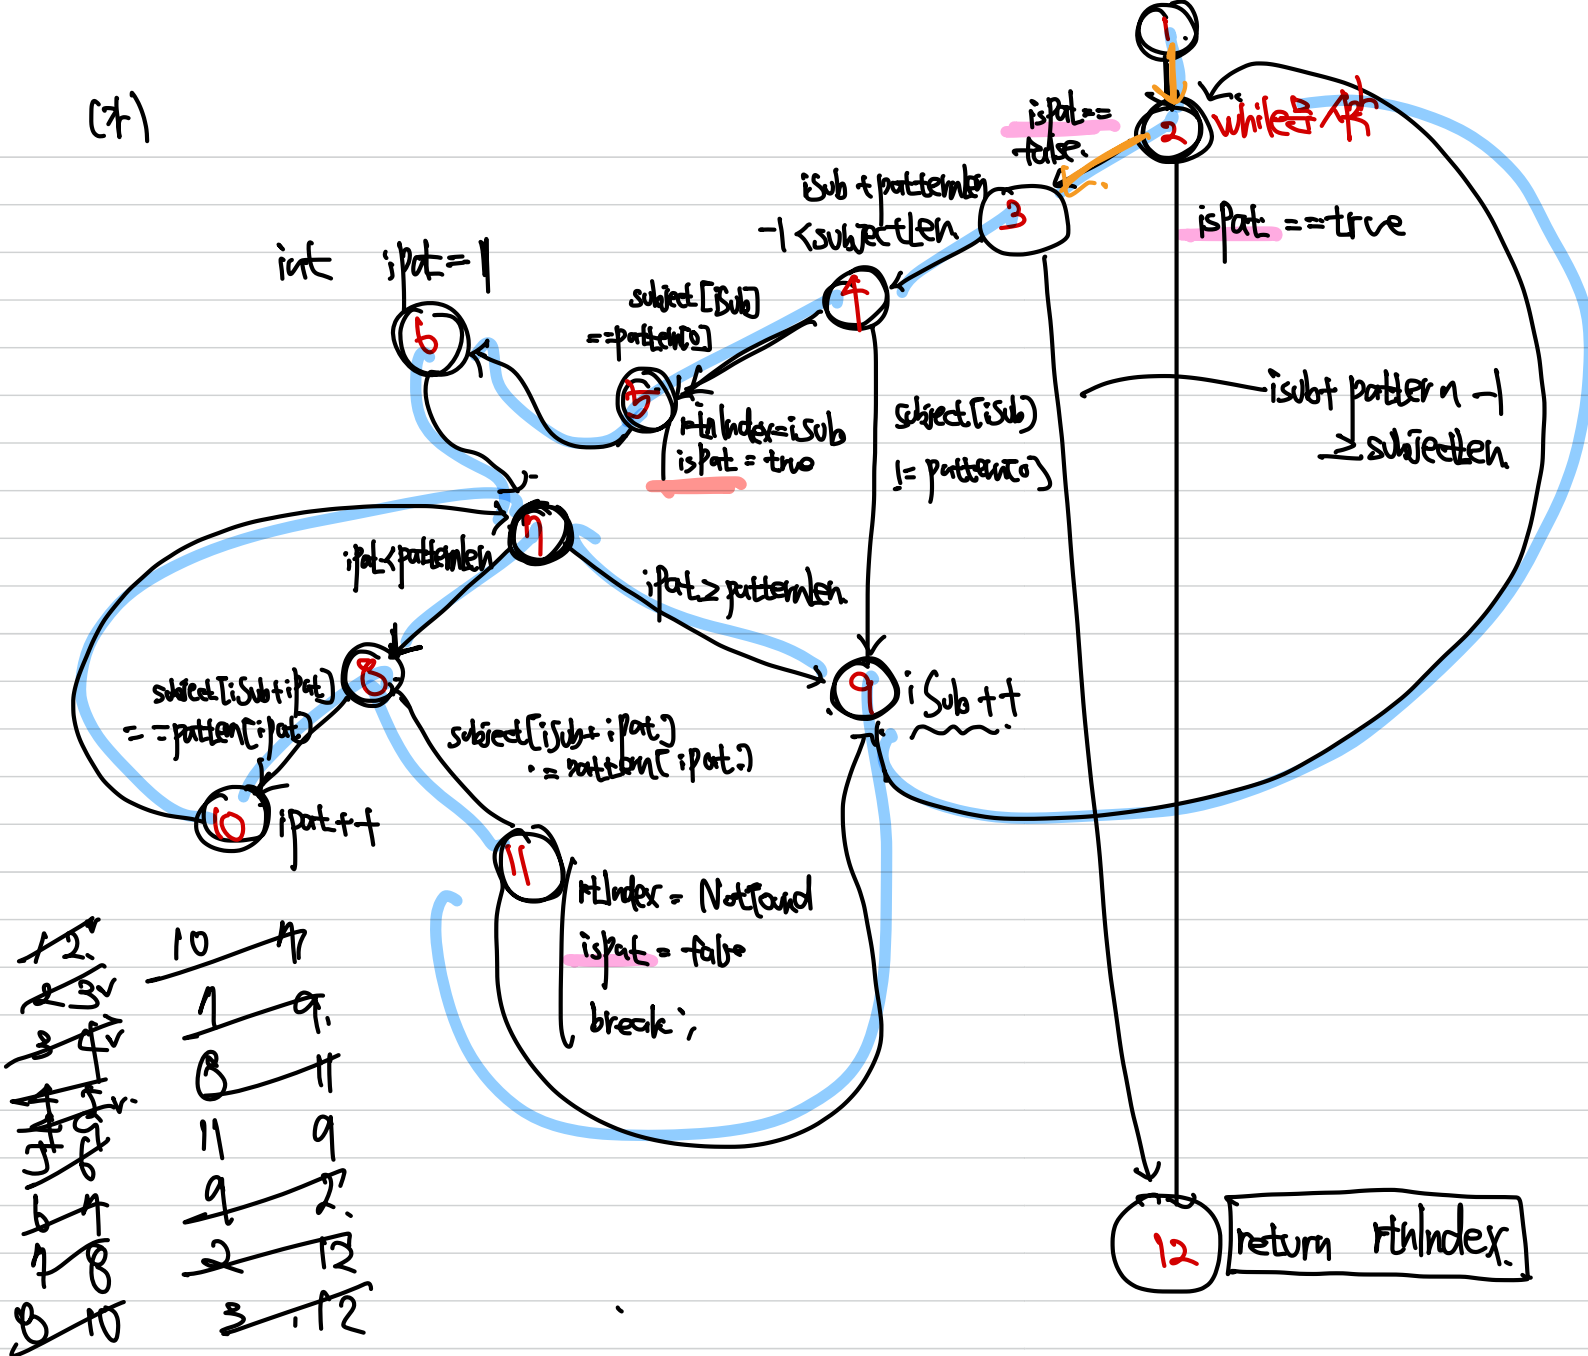 (자)
1
2
while문 시작
isPat==
false.
isPat ==true
3
isub + patternlen
-1<subjectlen
4
int iPat=1
subject[iSub]
==pattern[0]
6
5
rtnIndex=iSub
isPat = true
subject[iSub]
!= pattern[0]
isub+ pattern -1
≥ subjectlen
7
iPat<patternlen
iPat≥patternlen
8
9
iSub++
subject[iSub+iPat]
==pattern[iPat]
subject[iSub+iPat]
!=pattern[iPat]
10
ipat++
11
rtIndex = Notfound
isPat = false
break;
12
return rtnIndex
1 2
2 3
3 4
4 5
4 9
5 6
6 7
7 8
8 10
10 7
7 9
8 11
11 9
9 2
2 12
3 12